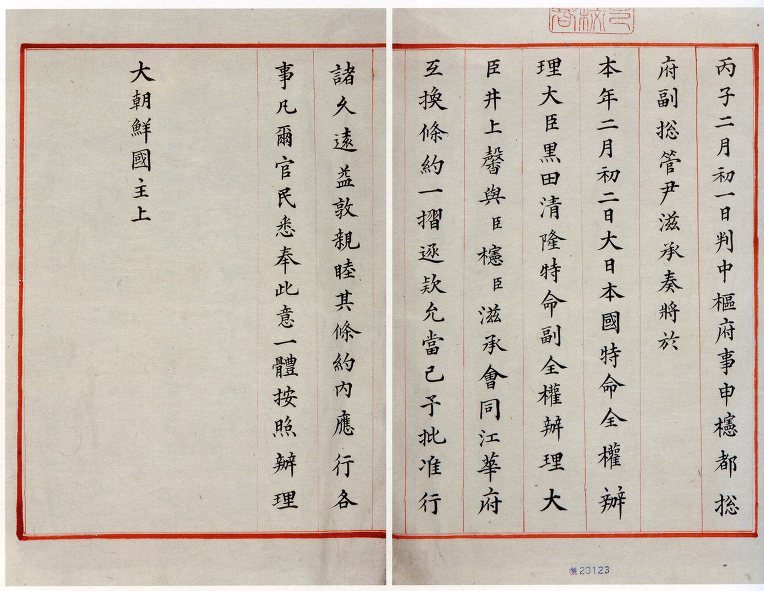 丙子二月初一日判中樞府事申櫶都揔
府副揔管尹滋承奏將於
本年二月初二日大日本國特命全權辦
理大臣黒田清隆特命副全權辦理大
臣井上馨與臣櫶臣滋承會同江華府
互換條約一摺逐欵允當已予批准行
諸久遠益敦親睦其條約內應行各
事凡爾官民悉奉此意一體按照辦理
大朝鮮國主上
奎23123